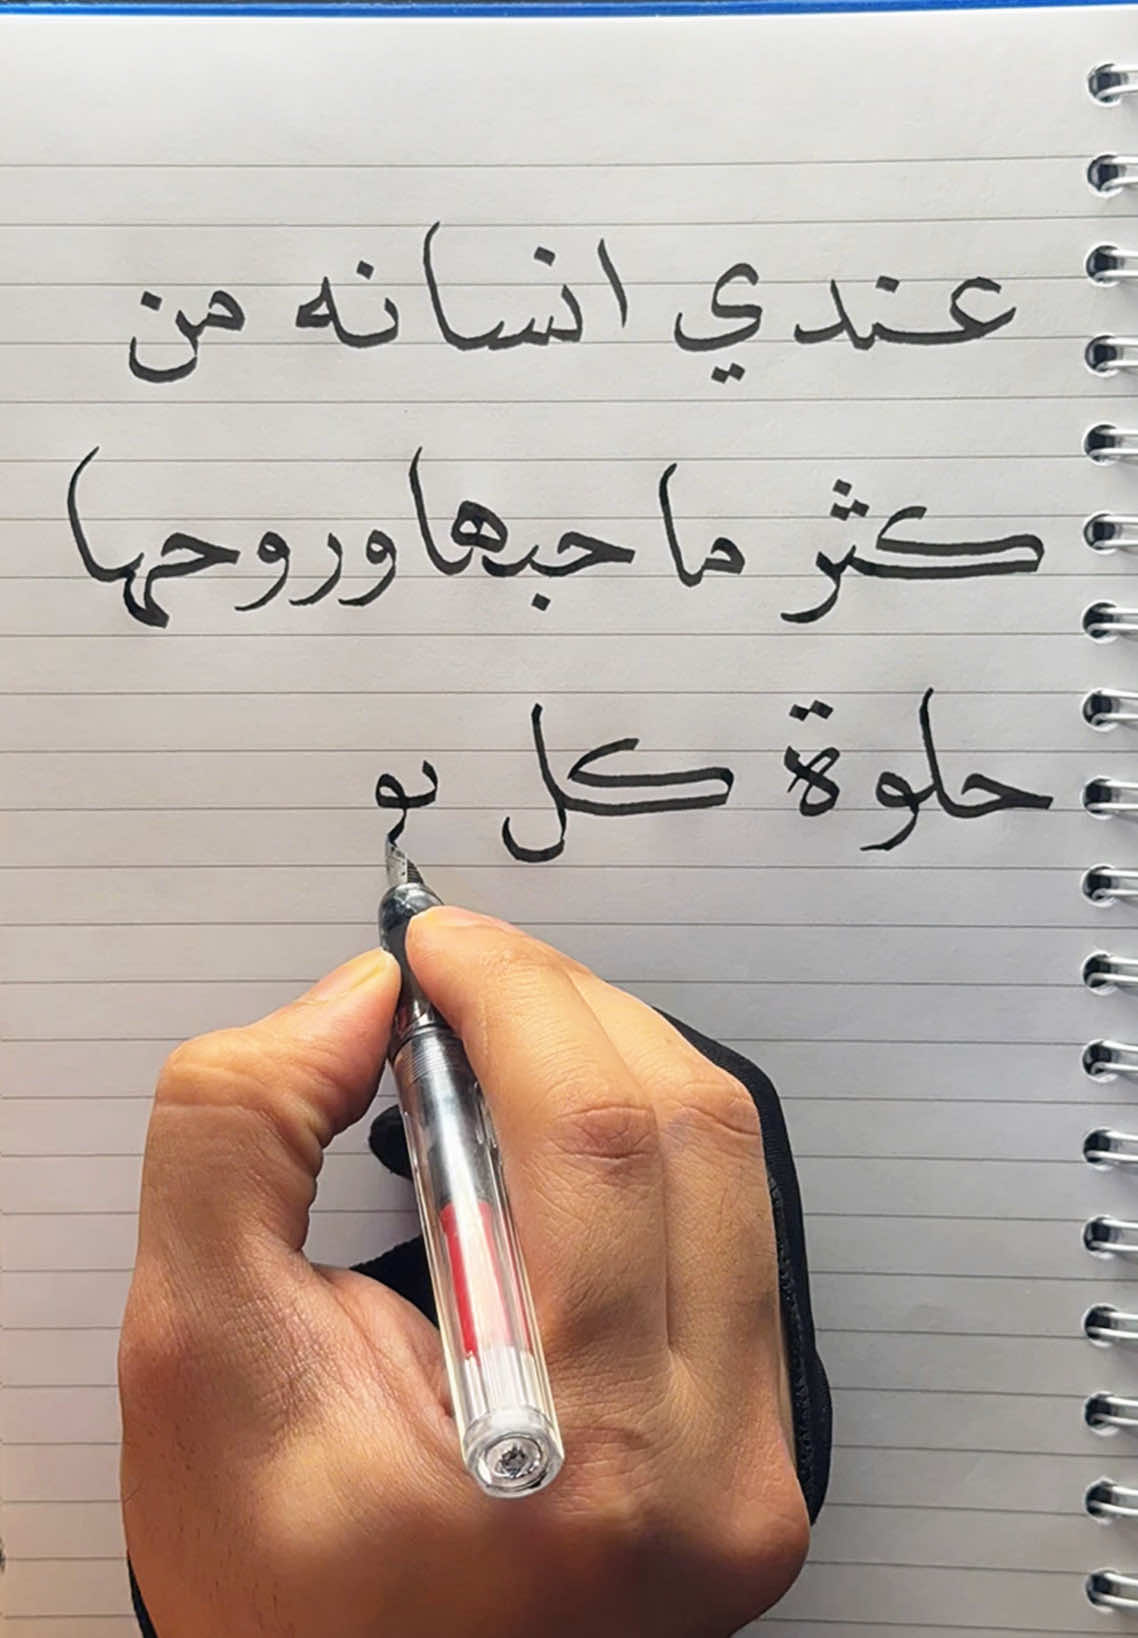 عندي انسانه من
كثر ما حبها وروحها
حلوة كل